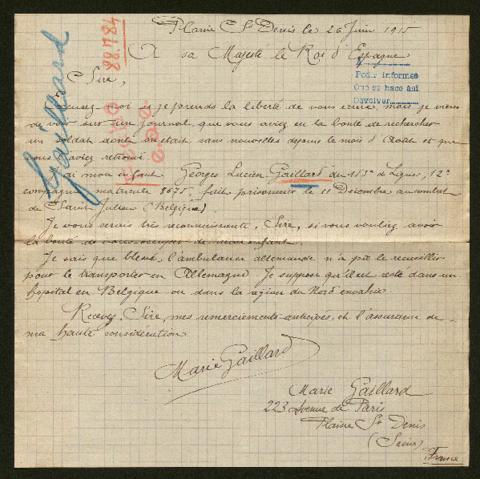 Plaine St Denis le 26 Juin 1915
A sa Majesté le Roi d'Espagne
Sire,
Pedir informes
Gaillard
48488
moi si je prends la liberté de vous écrire, mais je viens
de voir sur un journal, que vous aviez eu la bonté de rechercher
un soldat dont on était sans nouvelles depuis le mois d'Août et que
vous l'aviez retrouvé
Georges Lucien Gaillard du de Ligne, 12e
compagnie matricule 8675, fait prisonnier le 11 Décembre au combat
de Saint Julien (Belgique)
Je vous serais très reconnaissante, Sire, si vous vouliez avoir
la bonté de vous occuper de mon enfant.
Je sais que blessé, l'ambulance allemande n'a pu le recueillir
pour le transporter en Allemagne. Je suppose qu'il est resté dans un
hopital en Belgique ou dans la région du Nord envahie.
Recevez, Sire, mes remerciements anticipés, et l'assurance de
ma haute considération
Marie Gaillard
Marie Gaillard
223 Avenue de Paris
Plaine St Denis
(Seine)
France